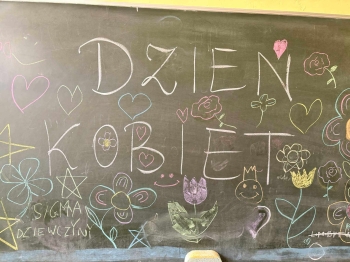 DZIEŃ
KOBIET
SIGMA
DZIEWCZINY